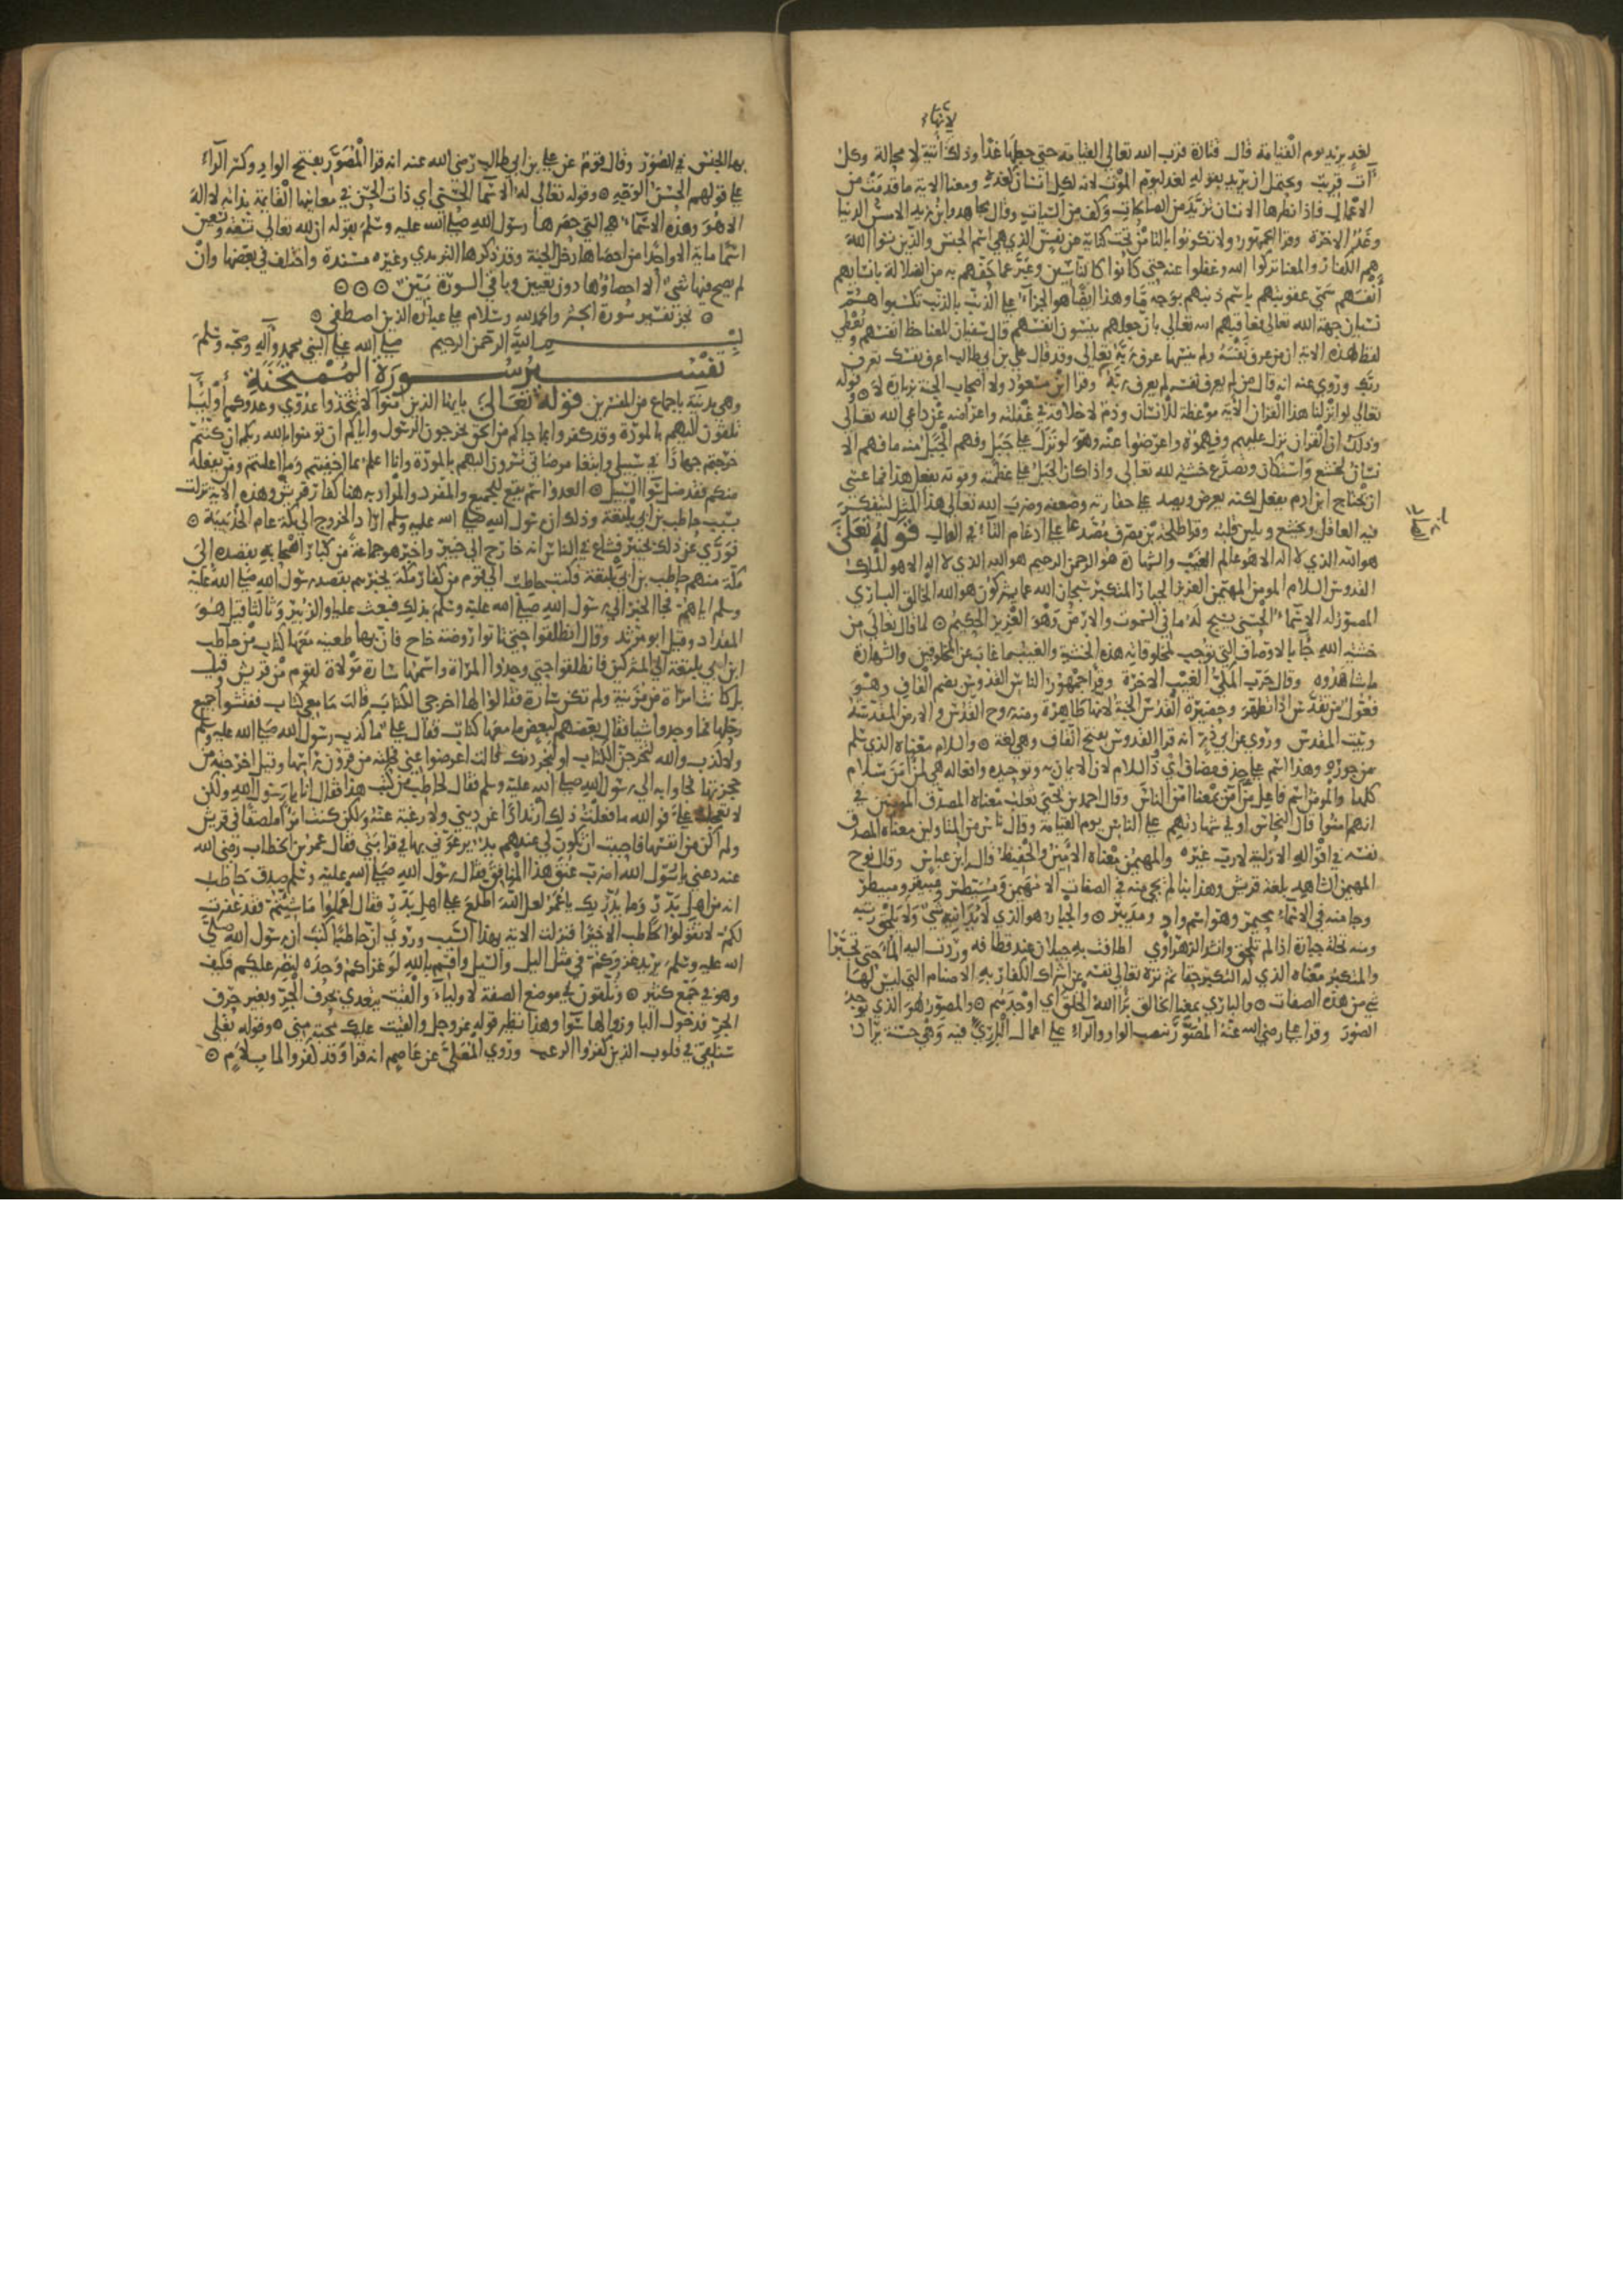 لأنها
لغد يريد يوم القيامة قال قتادة قرب الله تعالى القيامة حتى جعلها غدا وذلك أنها آتية لا محالة وكل
آت قريب ويحتمل ان يريد بقوله لغد ليوم الموت لانه لكل انسان كغده ومعنا الاية ما قدمت من
الاعمال فاذا نظرها الانسان تزيد من الصالحات وكف من السيات وقال مجاهد وابن زيد الامس الدنيا
وغد الاخرة وقرا الجمهور ولا تكونوا بالتا من تحت كناية عن نفس الذي هي اسم الجنس والذين نسوا الله
هم الكفار والمعنا تركوا الله وغفلوا عنه حتى كانوا كالناسين وعبر عما حفهم به من الضلالة بانساهم
أنفسهم سمى عقوبتهم باسم ذنبهم بوجه ما وهذا ايضا هو الجزآء على الذنب بالذنب تكسبوا هم
نسيان جهة الله تعالى فعاقبهم الله تعالى بان جعلهم ينسون انفسهم قال سفيان المعنا حظ انفسهم ويعطي
لفظ هذه الاية ان من عرف نفسه ولم ينسها عرف ربه تعالى وقد قال علي بن ابي طالب اعرف نفسك تعرف
ربك وروي عنه انه قال من لم يعرف نفسه لم يعرف ربه وقرا ابن مسعود ولا اصحاب الجنة بزيادة لا ⊙ قوله
تعالى لو انزلنا هذا القران الآية موعظة للانسان وذم لاخلاقه في غفلته واعراضه عن داعي الله تعالى
وذلك ان القران نزل عليهم وفهموه واعرضوا عنه وهو لو نزل على جبل وفهم الجبل منه ما فهم الا
نسان لخشع واستكان وتصدع خشية لله تعالى واذا كان الجبل على عظمه وقوته يفعل هذا فما عسى
ان يحتاج ابن ادم يفعل لكنه يعرض ويصد على حقارته وضعفه وضرب الله تعالى هذا المثل ليتفكر
فيه العاقل ويخشع ويلين قلبه وقرا طلحة بن مصرف مصدعا على ادغام التاء في الصاد قوله تعالى
هو الله الذي لا اله الا هو عالم الغيب والشهادة هو الرحمن الرحيم هو الله الذي لا اله الا هو الملك
القدوس السلام المومن المهيمن العزيز الجبار المتكبر سبحان الله عما يشركون هو الله الخالق الباري
المصور له الاسماء الحسنى يسبح له ما في السموت والارض وهو العزيز الحكيم ⊙ لما قال تعالى من
خشية الله جا بالاوصاف التي توجب لمخلوقاته هذه الخشية والغيب ما غاب عن المخلوقين والشهادة
ما شاهدوه وقال حرب المكي الغيب الاخرة وقرا جمهور الناس القدوس بضم القاف وهو
فعول من تقدس اذا تطهر وحضيرة القدس الجنة لانها طاهرة ومنه روح القدس والارض المقدسة
وبيت المقدس وروي عن ابي ذر انه قرا القدوس بفتح القاف وهي لغة ⊙ والسلام معناه الذي سلم
من جوره وهذا اسم على حذف مضاف اي ذا السلام لان الايمان به وتوحيده وافعاله هي لمن امن سلام
كلها والمومن اسم فاعل من امن بمعنا امن الناس وقال احمد بن يحيى ثعلب معناه المصدق المومنين في
انهم امنوا قال النحاس او في شهادتهم على الناس يوم القيامة وقال ناس من المتاولين معناه المصدق
نفسه في اقواله الازلية لا رب غيره والمهيمن معناه الامين والحفيظ قال ابن عباس وقال نوح
المهيمن الشاهد بلغة قريش وهذا بنا لم يجي منه في الصفات الا مهيمن ومسيطر ومبيقر ومبيطر
وجا منه في الاسماء مجيمر وهو اسم واد ومديبر ⊙ والجبار هو الذي لا يدانيه شي ولا يلحق رتبه
ومنه نخلة جبارة اذا لم تلحق وانشد الزهراوي اطافت به جيلان عند قطافه وردت اليه الماء حتى تجبرا
والمتكبر معناه الذي له التكبر حقا ثم نزه تعالى نفسه عن اشراك الكفار به الاصنام التي ليس لها
شي من هذه الصفات ⊙ والباري بمعنا الخالق برا الله الخلق اي اوجدهم ⊙ والمصور هو الذي يوجد
الصور وقرا علي رضي الله عنه المصور بنصب الواو والراء على اعمال الباري فيه وهي حسنة يراد
بها الجنس في الصور وقال قوم عن علي بن ابي طالب رضي الله عنه انه قرا المصور بفتح الواو وكسر الراء
على قولهم الحسن الوجه ⊙ وقوله تعالى له الاسما الحسنى اي ذات الحسن في معانيها القايمة بذاته لا اله
الا هو وهذه الاسماء هي التي حصرها رسول الله صلى الله عليه وسلم بقوله ان لله تعالى تسعة وتسعين
اسما ماية الا واحدا من احصاها دخل الجنة وقد ذكرها الترمدي وغيره مسندة واختلف في بعضها وان
لم يصح فيها شيء الا احصاؤها دون تعيين وباقي السورة بين ⊙ ⊙ ⊙
⊙ نجز تفسير سورة الحشر والحمد لله وسلام على عباده الذين اصطفى ⊙
بسم الله الرحمن الرحيم صلى الله على النبي محمد وآله وصحبه وسلم
تفسير سورة الممتحنة
وهي مدنية باجماع من المفسرين قوله تعالى يايها الذين آمنوا لا تتخذوا عدوي وعدوكم أوليا
تلقون اليهم بالمودة وقد كفروا بما جاكم من الحق يخرجون الرسول واياكم ان تومنوا بالله ربكم ان كنتم
خرجتم جهادا في سبيلي وابتغا مرضاتي تسرون اليهم بالمودة وانا اعلم بما اخفيتم وما اعلنتم ومن يفعله
منكم فقد ضل سوا السبيل ⊙ العدو اسم يقع للجميع والمفرد والمراد به هنا كفار قريش وهذه الاية نزلت
بسبب حاطب بن ابي بلتعة وذلك ان رسول الله صلى الله عليه وسلم اراد الخروج الى مكة عام الحديبية ⊙
فورى عن ذلك بخيبر فشاع في الناس انه خارج الى خيبر واخبر هو جماعة من كبار اصحابه بقصده الى
مكة منهم حاطب بن ابي بلتعة فكتب حاطب الى قوم من كفار مكة يخبرهم بقصد رسول الله صلى الله عليه
وسلم اياهم فجا الخبر الى رسول الله صلى الله عليه وسلم بذلك فبعث عليا والزبير وثالثا قيل هو
المقداد وقيل ابو مرثد وقال انطلقوا حتى تاتوا روضة خاخ فان بها ظعينه معها كتاب من حاطب
ابن ابي بلتعة الى المشركين فانطلقوا حتى وجدوا المراة واسمها سارة مولاة لقوم من قريش قيل
بل كانت امراة من مزينة ولم تكن سارة فقالوا لها اخرجي الكتاب قالت ما معي كتاب ففتشوا جميع
رحلها فما وجدوا شيا فقال بعضهم لبعض ما معها كتاب فقال علي ما كذب رسول الله صلى الله عليه وسلم
ولا كذب والله لتخرجن الكتاب او لنجردنك قالت اعرضوا عني فحلته من قرون راسها وقيل اخرجته من
حجزتها فجاوا به الى رسول الله صلى الله عليه وسلم فقال لحاطب من كتب هذا فقال انا يا رسول الله ولكن
لا تعجل علي فوالله ما فعلت ذلك ارتدادا عن ديني ولا رغبة عنه ولكن كنت امرا ملصقا في قريش
ولم اكن من انفسها فاحببت ان تكون لي عندهم يد يرعونني بها في قرابتي فقال عمر بن الخطاب رضي الله
عنه دعني يا رسول الله اضرب عنق هذا المنافق فقال رسول الله صلى الله عليه وسلم صدق حاطب
انه من اهل بدر وما يدريك يا عمر لعل الله اطلع على اهل بدر فقال اعملوا ما شيتم فقد غفرت
لكم لا تقولوا لحاطب الا خيرا فنزلت الاية بهذا السبب وروي ان حاطبا كتب ان رسول الله صلى
الله عليه وسلم يريد غزوكم في مثل الليل والسيل واقسم بالله لو غزاكم وحده لنصر عليكم فكيف
وهو في جمع كثير ⊙ وتلقون في موضع الصفة لاولياء والقيت يتعدى بحرف الجر وبغير حرف
الجر فدخول البا وزوالها سوا وهذا نظير قوله عز وجل والقيت عليك محبة مني ⊙ وقوله تعالى
سنلقي في قلوب الذين كفروا الرعب وروي المعلى عن عاصم انه قرا وقد كفروا لما بلام ⊙